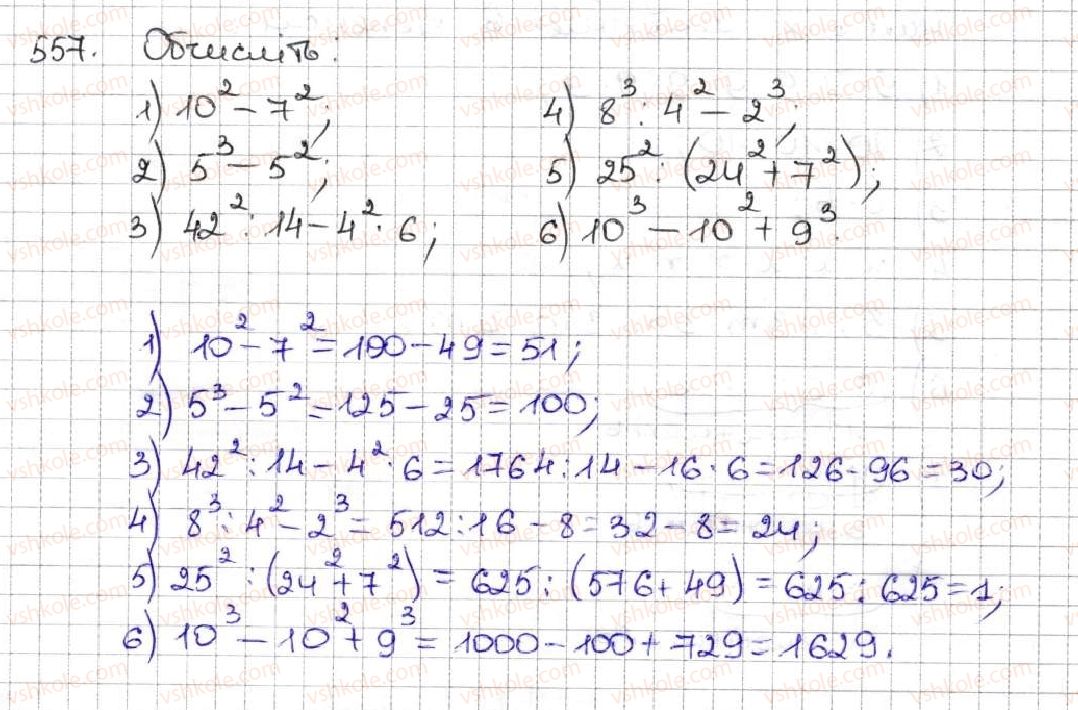 557. Обчисліть:
1) 10² − 7²;
2) 5³ − 5²;
3) 42² : 14 − 4² · 6;
4) 8³ : 4² − 2³;
5) 25² : (24² + 7²);
6) 10³ − 10² + 9³.
1) 10² − 7² = 100 − 49 = 51;
2) 5³ − 5² = 125 − 25 = 100;
3) 42² : 14 − 4² · 6 = 1764 : 14 − 16 · 6 = 126 − 96 = 30;
4) 8³ : 4² − 2³ = 512 : 16 − 8 = 32 − 8 = 24;
5) 25² : (24² + 7²) = 625 : (576 + 49) = 625 : 625 = 1;
6) 10³ − 10² + 9³ = 1000 − 100 + 729 = 1629.
vshkole.com